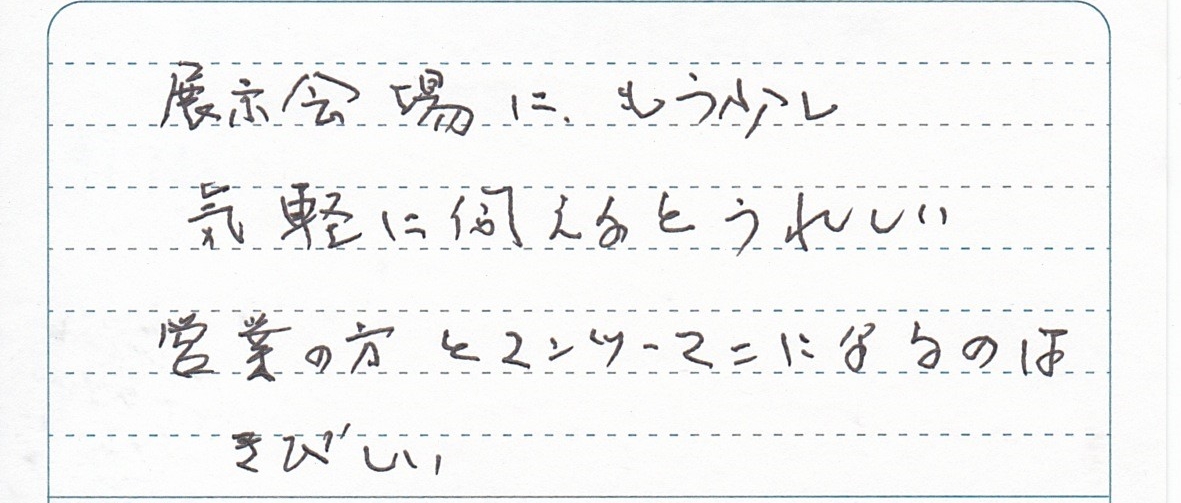 展示会場に、もう少し
気軽に伺えるとうれしい
営業の方とマンツーマンになるのは
きびしい